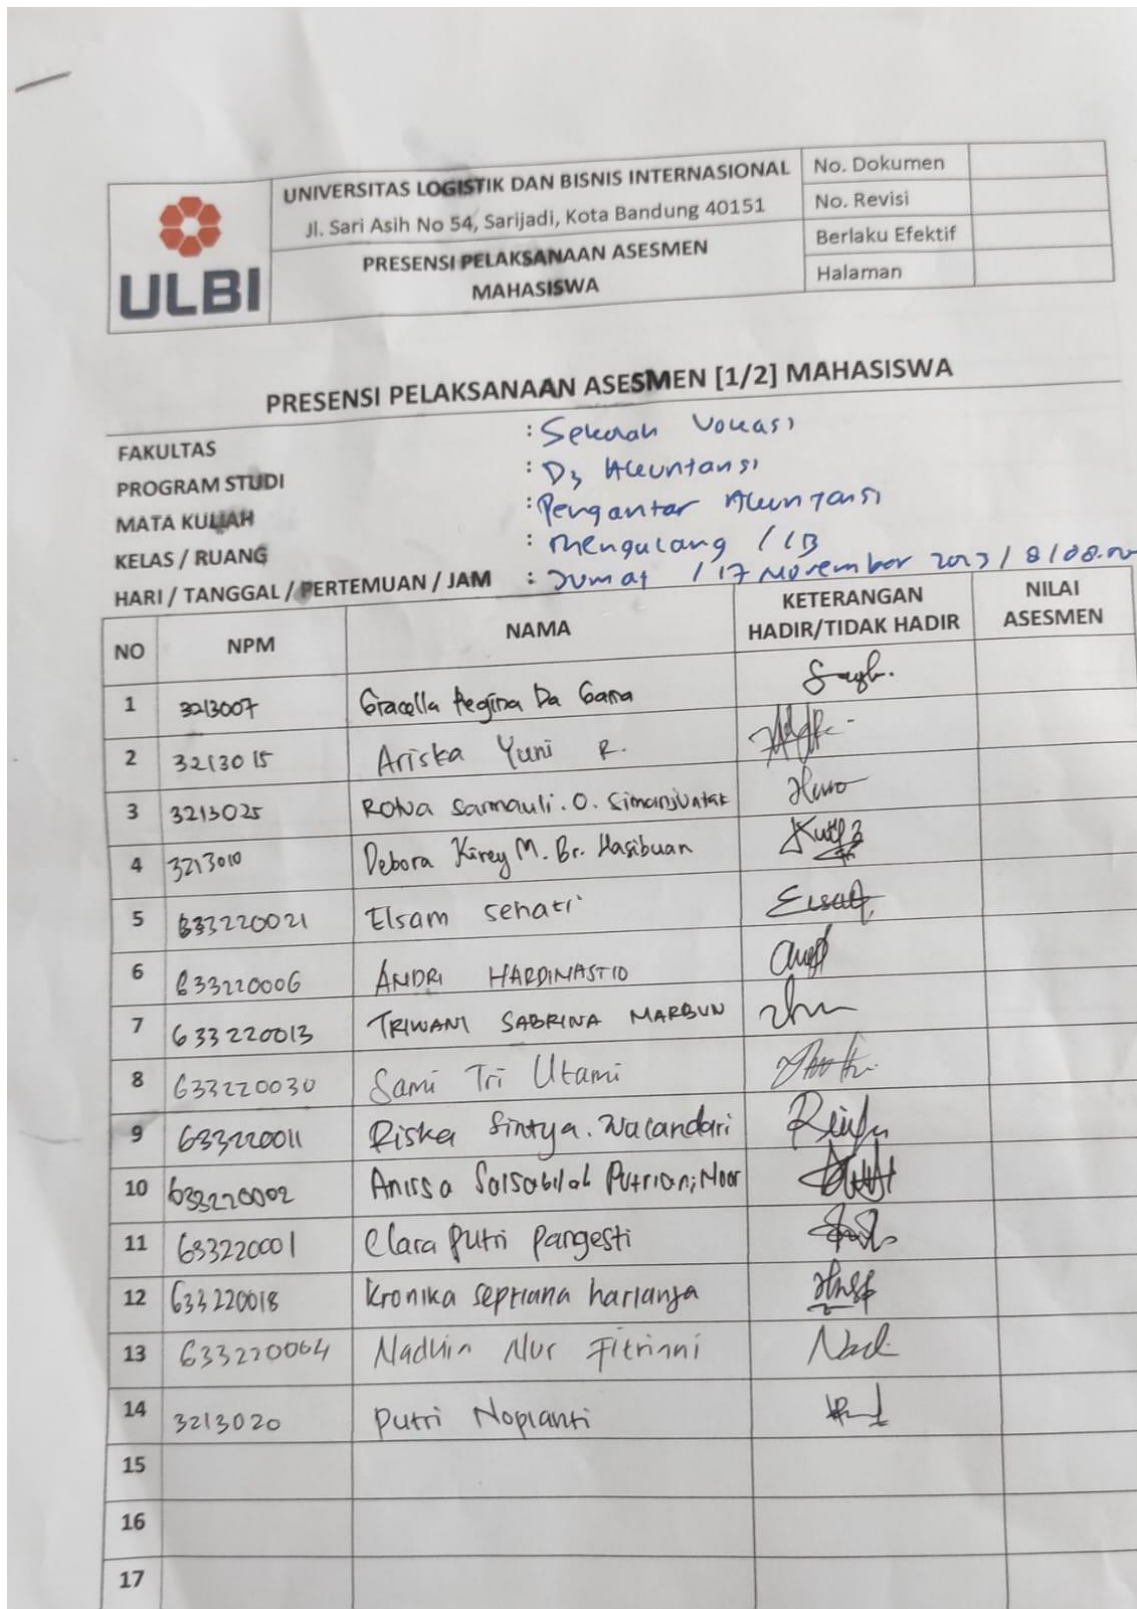 UNIVERSITAS LOGISTIK DAN BISNIS INTERNASIONAL
Jl. Sari Asih No 54, Sarijadi, Kota Bandung 40151
PRESENSI PELAKSANAAN ASESMEN
MAHASISWA
No. Dokumen
No. Revisi
Berlaku Efektif
Halaman
ULBI
PRESENSI PELAKSANAAN ASESMEN [1/2] MAHASISWA
FAKULTAS : Sekolah Vokasi
PROGRAM STUDI : D3 Akuntansi
MATA KULIAH : Pengantar Akuntansi
KELAS / RUANG : Mengulang / 1B
HARI / TANGGAL / PERTEMUAN / JAM : Jumat / 17 November 2023 / 8 / 08.00
NO NPM NAMA KETERANGAN HADIR/TIDAK HADIR NILAI ASESMEN
1 3213007 Gracella Regina Da Gama
2 3213015 Ariska Yuni R.
3 3213025 Rona Sarmauli. O. Simanjuntak
4 3213010 Debora Kirey M. Br. Hasibuan
5 633220021 Elsam Sehati
6 633220006 ANDRI HARDINASTIO
7 633220013 TRIWANI SABRINA MARBUN
8 633220030 Sami Tri Utami
9 633220011 Riska Sintya. Wulandari
10 633220002 Anissa Salsabilah Putriani Noor
11 633220001 Clara Putri Pangesti
12 633220018 Kronika septiana harianja
13 633220064 Nadhin Nur Fitriani
14 3213020 Putri Nopianti
15
16
17